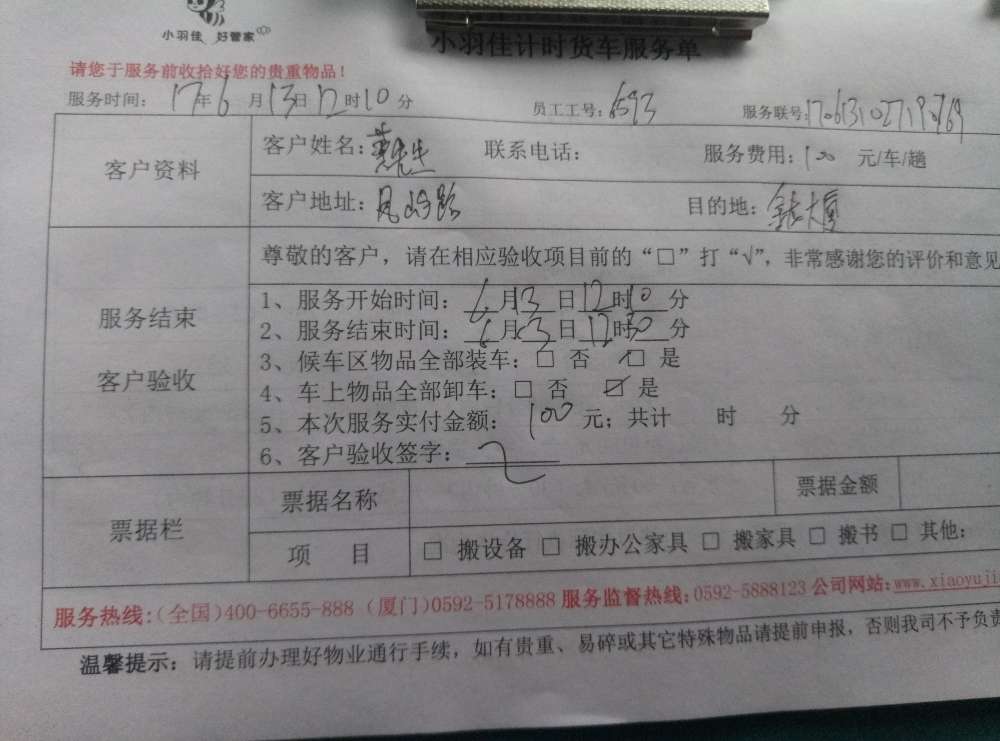 小羽佳 好管家
小羽佳计时货车服务单
请您于服务前收拾好您的贵重物品！
服务时间： 17年6月13日12时10分 员工工号：6593 服务联号：
客户资料
客户姓名：黄先生 联系电话： 服务费用：100 元/车/趟
客户地址： 目的地：大厦
服务结束
客户验收
尊敬的客户，请在相应验收项目前的“□”打“√”，非常感谢您的评价和意见
1、服务开始时间：6月13日12时10分
2、服务结束时间：6月13日12时30分
3、候车区物品全部装车：□ 否 ☑ 是
4、车上物品全部卸车：□ 否 ☑ 是
5、本次服务实付金额：100元；共计 时 分
6、客户验收签字：
票据栏
票据名称 票据金额
项 目 □ 搬设备 □ 搬办公家具 □ 搬家具 □ 搬书 □ 其他：
服务热线：(全国)400-6655-888 (厦门)0592-5178888 服务监督热线：0592-5888123 公司网站：www.xiaoyuji
温馨提示：请提前办理好物业通行手续，如有贵重、易碎或其它特殊物品请提前申报，否则我司不予负责